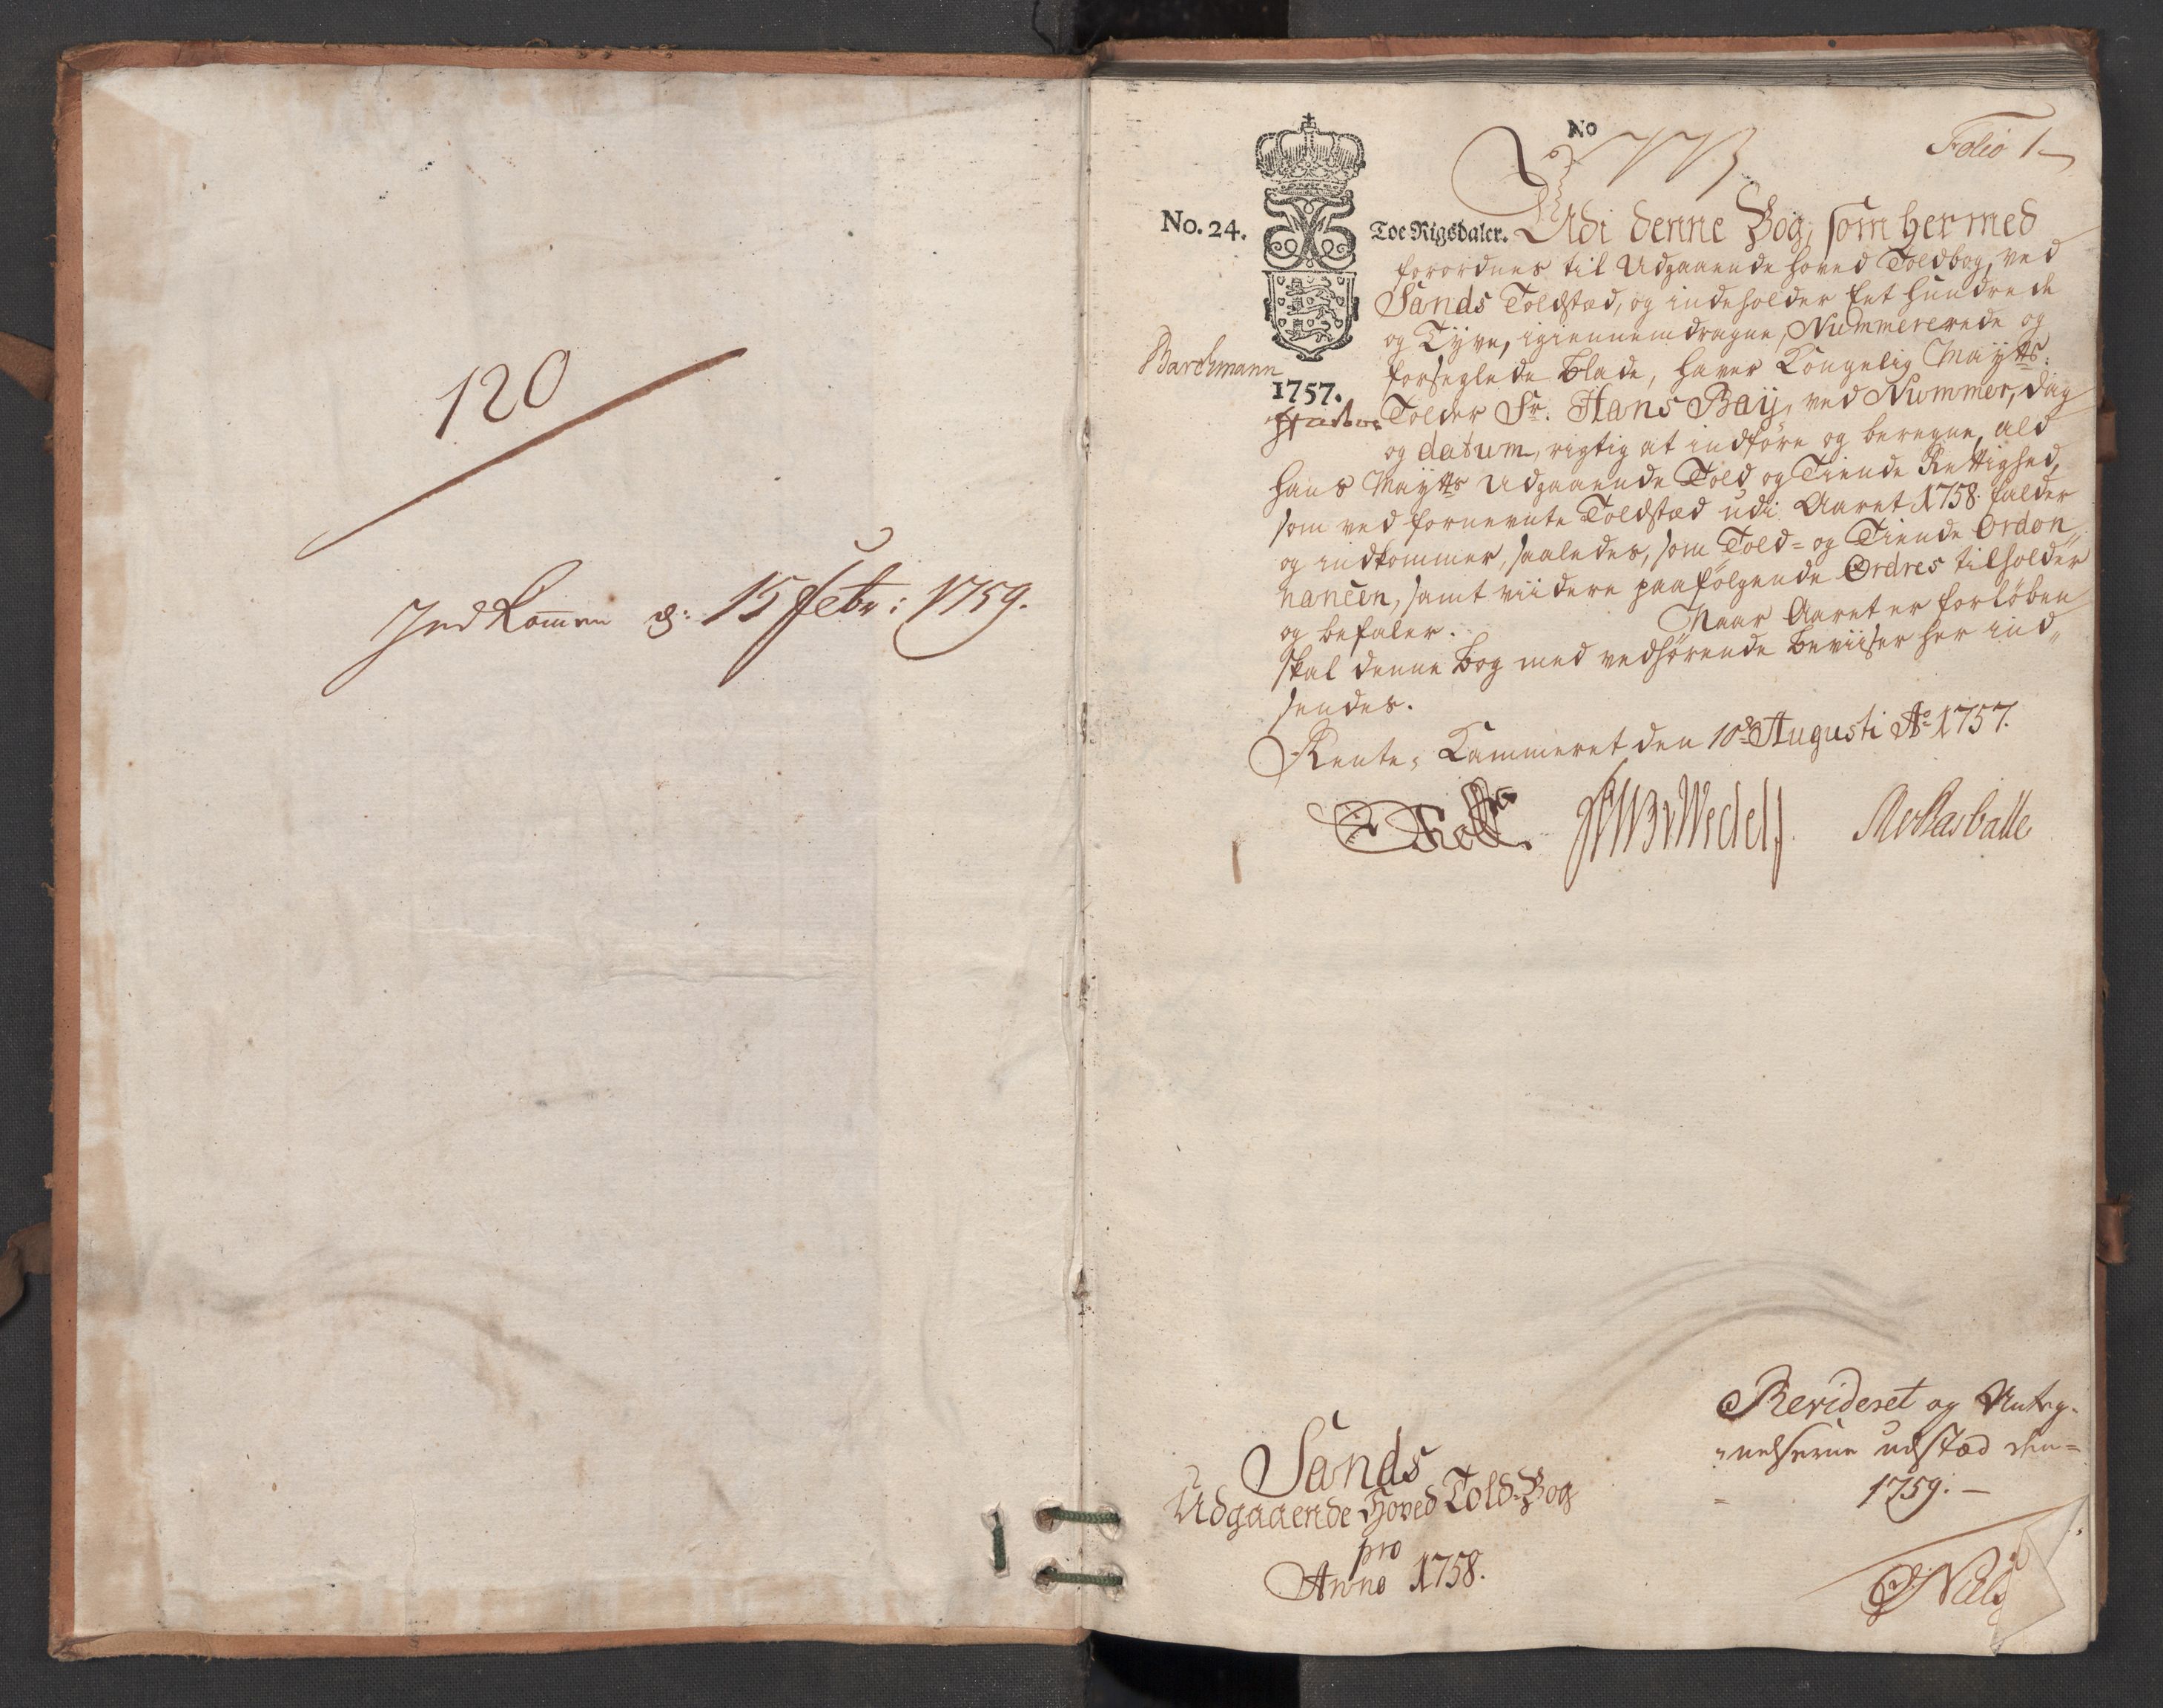 120
Indkommen d: 15 Febr: 1759.
No
Folio 1
No. 24.
Toe Rigsdaler.
Udi denne Bog, som hermed
forordnes til Udgaaende Hoved Toldbog, ved
Sands Toldstæd, og indeholder Eet Hundrede
og Tÿve, igiennemdragne, Nummererede og
forseglede Blade, haver Kongelig Maÿtts:
Barchmann
1757.
Tolder Sr. Hans Baÿ, ved Nummer, dag
og datum, rigtig at indføre og beregne, ald
Hans Maÿtts Udgaaende Told og Tiende Rettighed,
som ved fornevnte Toldstæd udi Aaret 1758. falder
og indkommer, saaledes, som Told= og Tiende Ordon„
nancen, samt viidere paafølgende Ordres tilholder
og befaler.
Naar Aaret er forløben
skal denne Bog med vedhørende Beviiser her ind„
sendes.
Rente-Kammeret den 10de Augusti Ao 1757.
Wedell
Sands
Udgaaende Hoved Told-Bog
pro
Anno 1758.
Revideret og Anteg-
nelserne udstæd den=
1759.